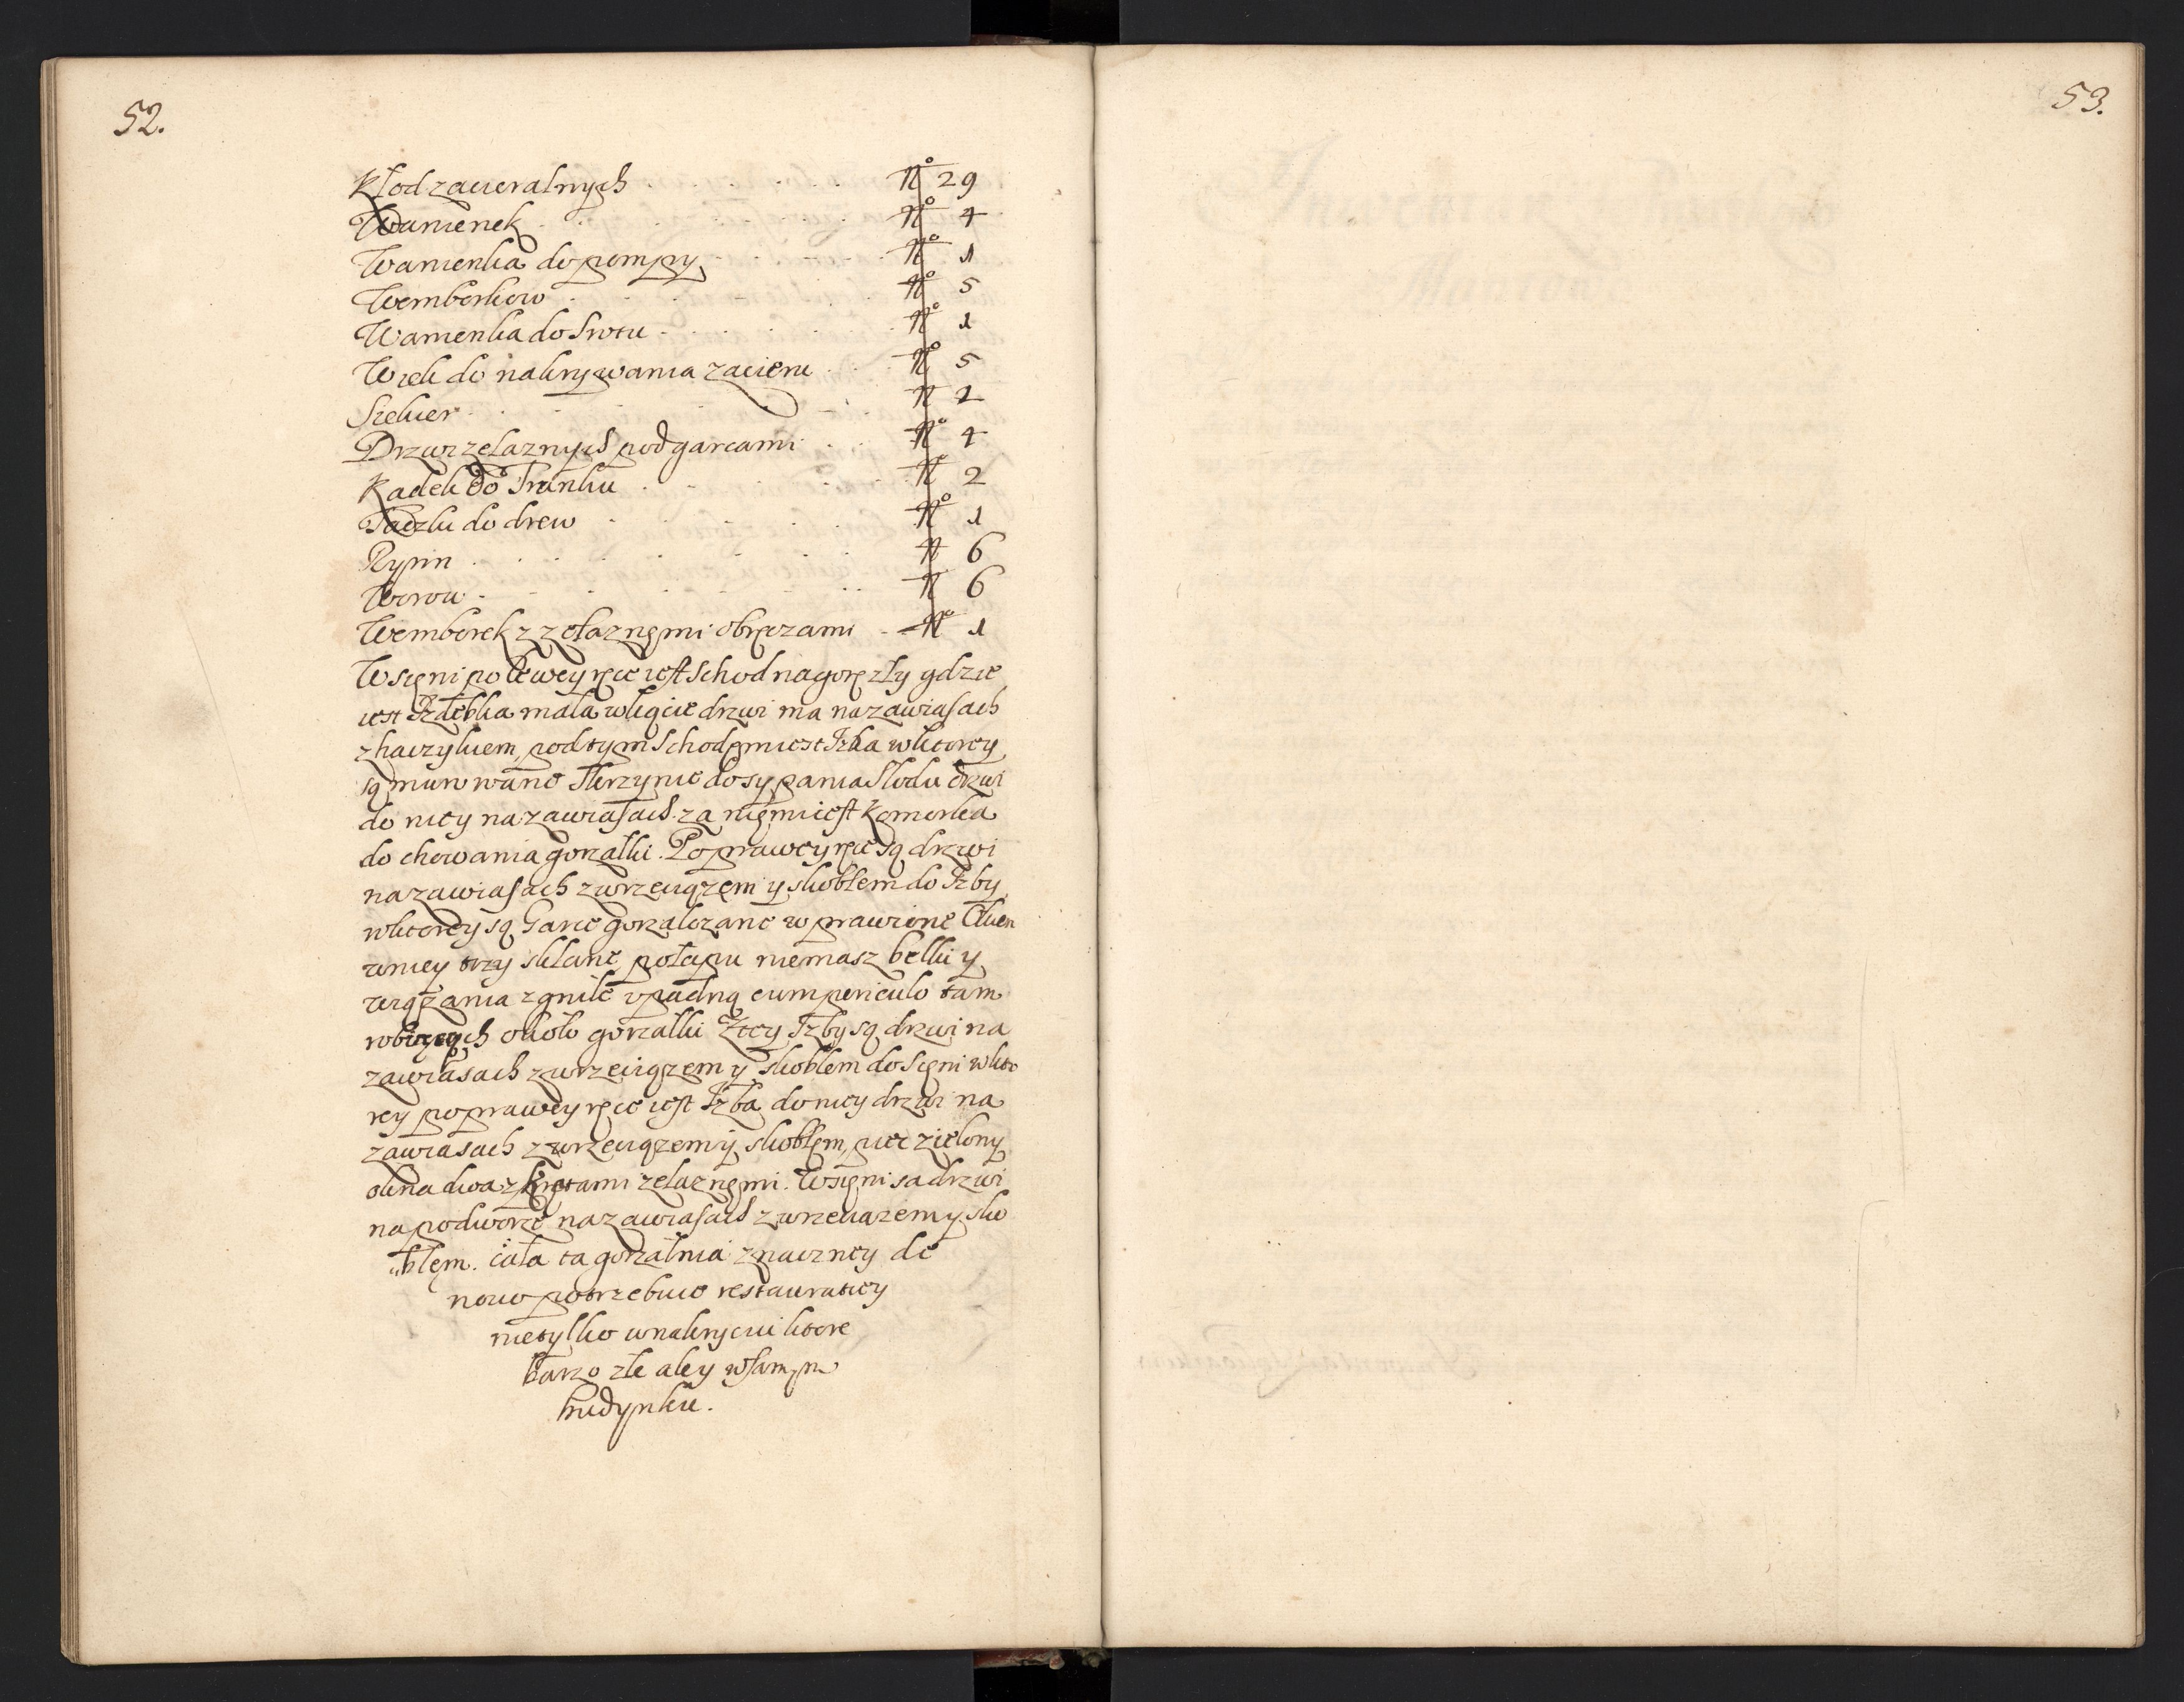 52.
Kłod zacieralnych . . . . . . № 29
Wanienek . . . . . . № 4
Wanienka do pompy . . . . № 1
Wemborkow . . . . . . № 5
Wanienka do Srotu . . . . . № 1
Wiek do nakrywania zacieru . . . № 5
Siekier . . . . . . N 2
Drzwi zelaznych pod garcami . . № 4
Kadek do Trunku . . . . . N 2
Taczki do drew . . . . . № 1
Rynn . . . . . . N 6
Worow . . . . . . N 6
Wemborek z zelaznęmi obręczami . № 1
W sięni po lewey ręce iest Schod na gorę zły gdzie
iest Izdebka mała w kącie drzwi ma na zawiasach
z haczykiem, pod tym Schodęm iest Izba w ktorey
są murowane Skrzynie do sypania Słodu drzwi
do niey na zawiasach za nięmi iest Komorka
do chowania gorzałki. Po prawey ręce są drzwi
na zawiasach z wrzeciązem y skoblem do Izby
w ktorey są Garce gorzalczane w prawione Okien
w niey trzy sklane połapu niemasz belki y
wiązania zgniłe upadną cum periculo tam
robiących około gorzałki Z tey Izby są drzwi na
zawiasach z wrzeciązem y skoblem do Sięni w kto
rey po prawey ręce iest Izba do niey drzwi na
zawiasach z wrzeciązem y skoblem, piec zielony
okna dwa z kratami zelaznęmi. W sięni sa drzwi
na podworze na zawiasach z wrzeciazem y sko
„blęm. cała ta gorzalnia znaczney de
novo potrzebuie restauratiey
nietylko w nakryciu ktore
barzo złe ale y w samym
budynku.
53.